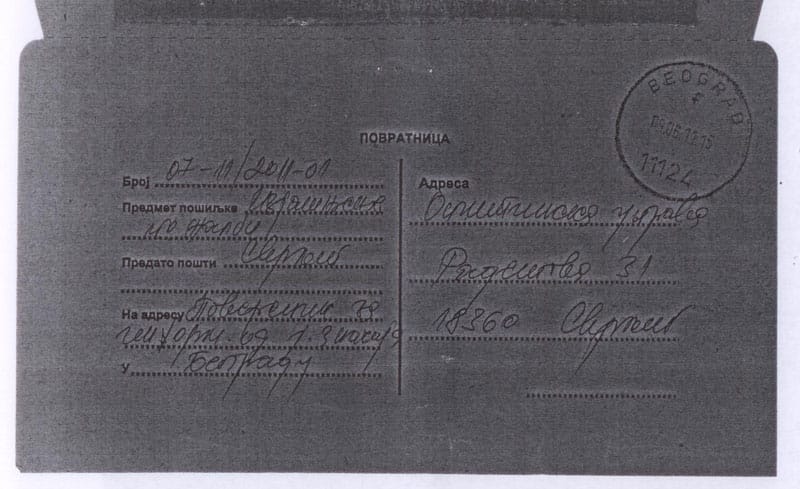 BEOGRAD
11124
ПОВРАТНИЦА
Број 07-11/2011-01
Предмет пошиљке Изјашњење
по жалби
Предато пошти Сврљиг
На адресу Повереник за
информ. од ј. значаја
У Београду
Адреса
Општинска управа
Радетова 31
18360 Сврљиг